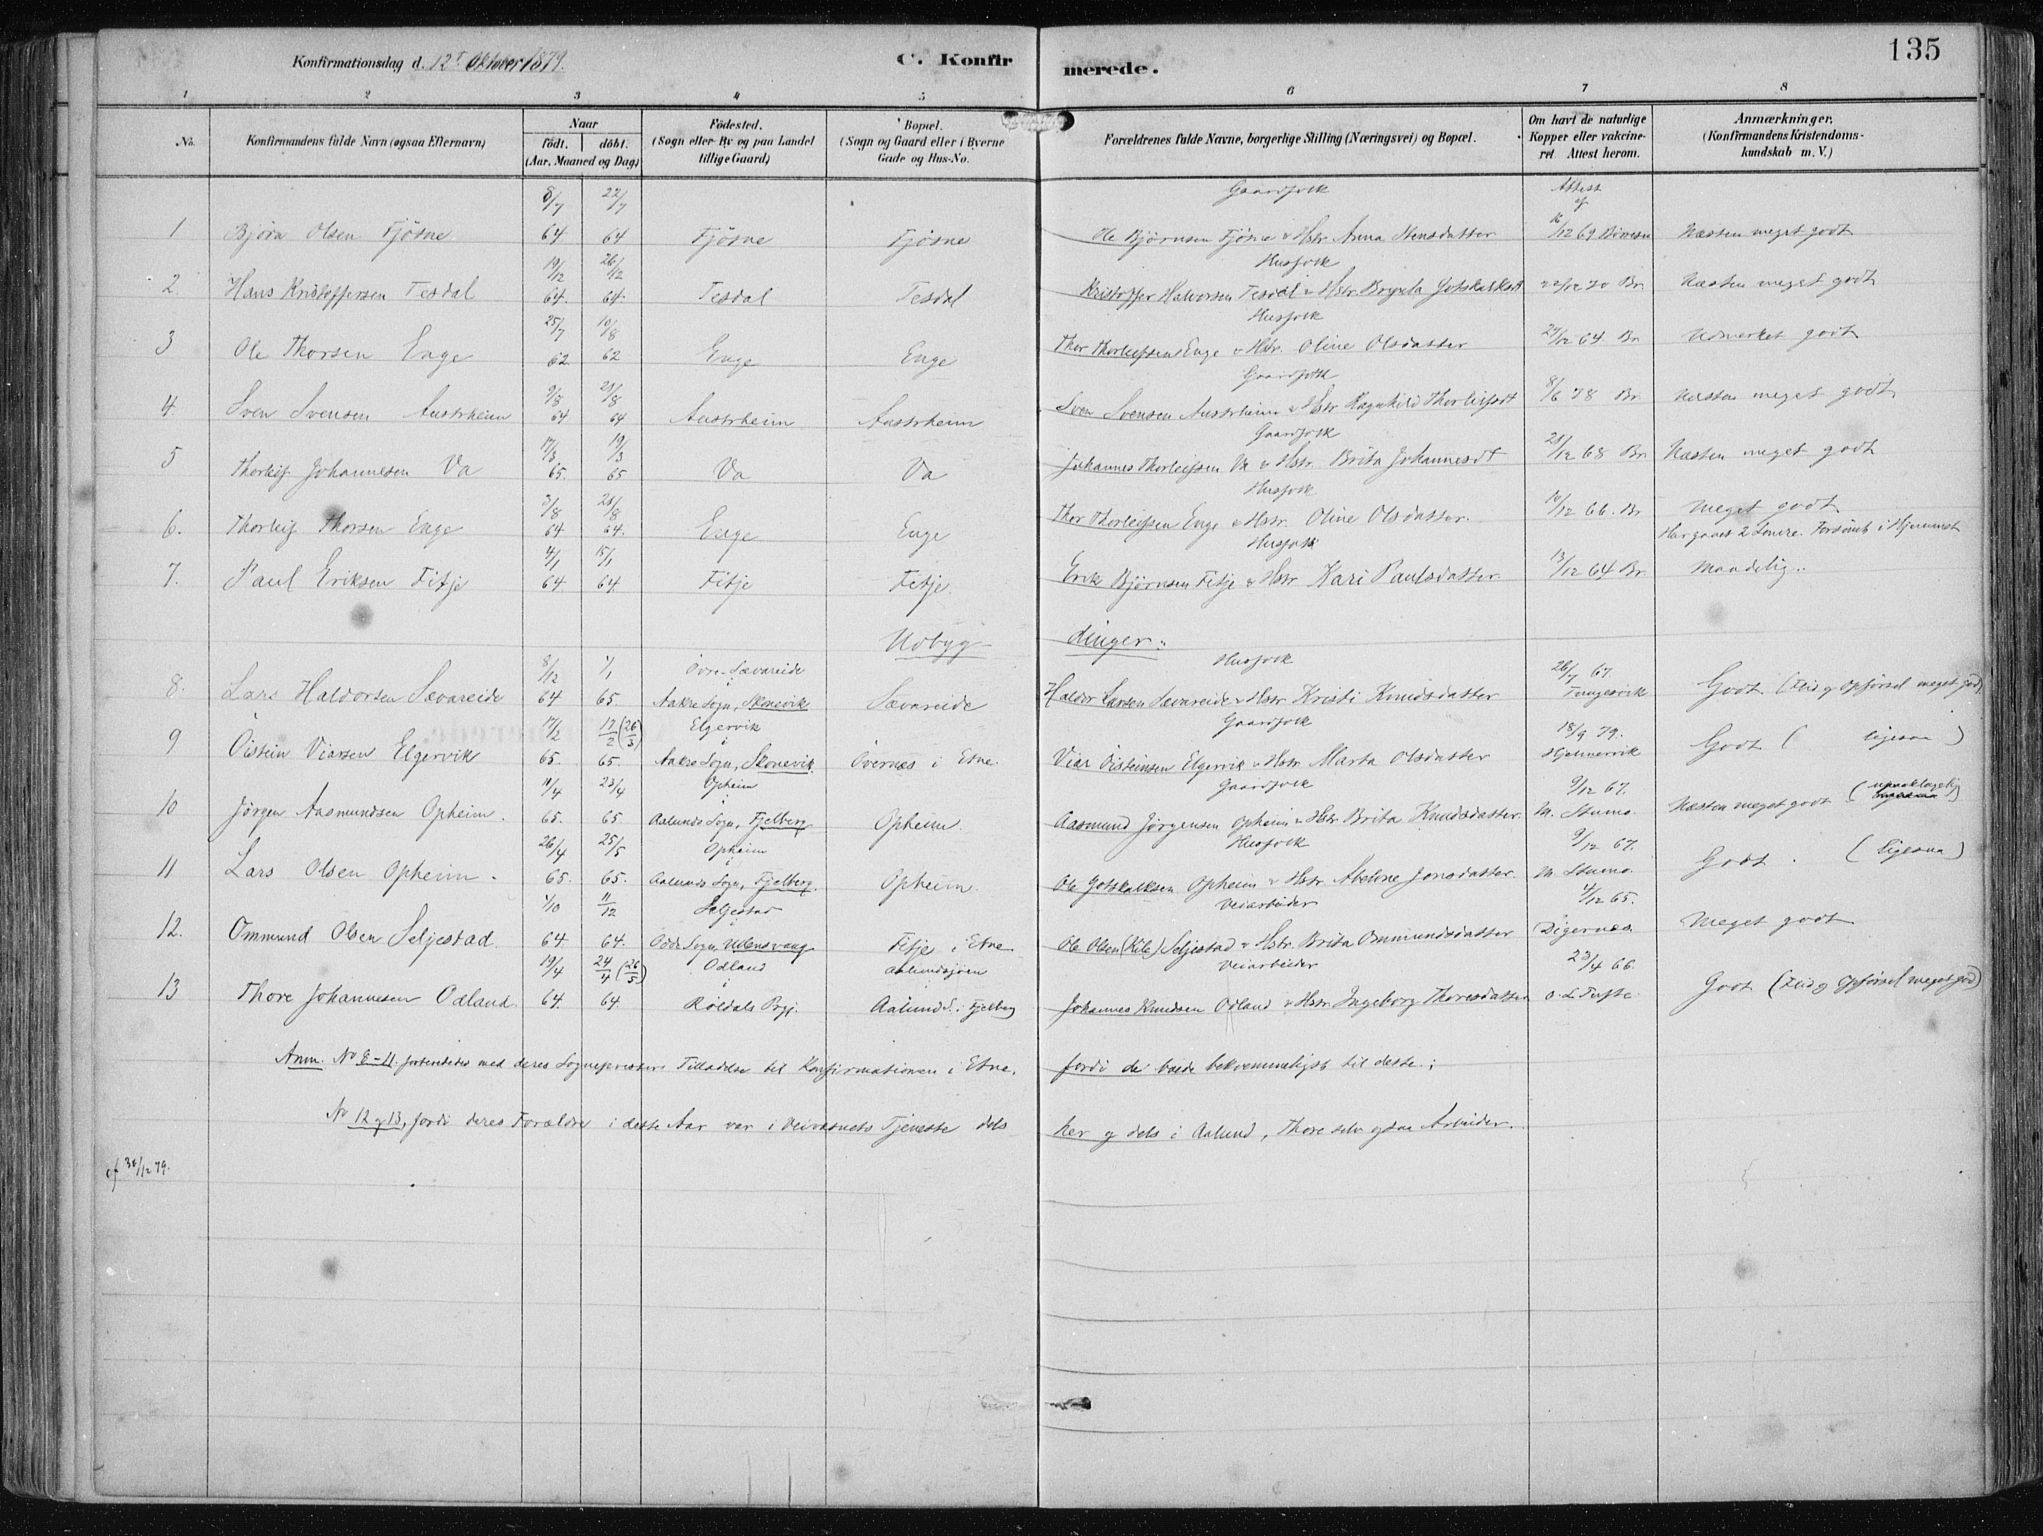 135
Konfirmationsdag d. 12t Oktober 1879.
C. Konfirmerede.
1 2 3 4 5 6 7 8
No.
Konfirmandens fulde Navn (ogsaa Efternavn)
Naar
født. døbt.
(Aar, Maaned og Dag)
Fødested.
(Sogn eller By og paa Landet
tillige Gaard)
Bopæl.
(Sogn og Gaard eller i Byerne
Gade og Hus-No.
Forældrenes fulde Navne, borgerlige Stilling (Næringsvei) og Bopæl.
Om havt de naturlige
Kopper eller vakcine-
ret Attest herom.
Anmærkninger.
(Konfirmandens Kristendoms-
kundskab m. V.)
8/7 22/7 Gaardfolk Attest af
1 Bjørn Olsen Fjösne 64 64 Fjösne Fjösne Ole Bjørnsen Fjösne & Hstr. Anna Stensdatter 16/12 69 Næsten meget godt
19/12 26/12 Husfolk
2. Hans Kristoffersen Tesdal 64. 64. Tesdal Tesdal Kristoffer Halvorsen Tesdal & Hstr. Brynla Gotskalksdt 22/12 70 Br. Næsten meget godt
25/7 10/8 Husfolk
3 Ole Thorsen Enge 62 62 Enge Enge Thor Thorleifsen Enge & Hstr. Oline Olsdatter 29/12 64 Br Udmerket godt
9/8 21/8 Gaardfolk
4. Sven Svensen Austrheim 64 64 Austrheim Austrheim Sven Svensen Austrheim & Hstr Ragnhild Thorleifsdt 8/6 78 Br. Næsten meget godt
17/3 19/3 Gaardfolk
5 Thorleif Johannesen Va 65. 65 Va Va Johannes Thorleifsen Va & Hstr. Brita Johannesdt 28/12 68 Br. Næsten meget godt
3/8 21/8 Husfolk
6. Thorleif Thorsen Enge 64 64. Enge Enge Thor Thorleifsen Enge & Hstr. Oline Olsdatter. 10/12 66. Br Meget godt
4/1 15/1 Husfolk Har gaaet 2 . Forsömt i Hjemmet
7. Paul Eriksen Fitje 64. 64. Fitje Fitje. Erik Bjørnsen Fitje & Hstr Kari Paulsdatter 13/12 64 Br. Maadelig.
Udbygdinger:
8/12 1/1 Övre Sævareide Husfolk 26/7 67.
8. Lars Haldorsen Sævareide 64 65. Aakre Sogn, Skonevik Sævareide Haldor Larsen Sævareide & Hstr. Kristi Knudsdatter Tungesvik Godt (Flid og Opførsel meget god)
17/2 17/2 (26/3) Elgervik Gaardfolk 18/9 79.
9 Öistein Viarsen Elgervik 65. 65. Aakre Sogn, Skonevik. Övernæs i Etne. Viar Öisteinsen Elgervik & Hstr. Marta Olsdatter Godt ( ligesaa )
11/4 23/4 Opheim Gaardfolk 9/12 67.
10 Jörgen Aasmundsen Opheim. 65. 65 Aalunds Sogn, Fjelberg Opheim. Aasmund Jörgensen Opheim & Hstr. Brita Knudsdatter M. Stumo. Næsten meget godt (upaaklagelig)
26/4 25/5 Opheim Husfolk 9/12 67.
11 Lars Olsen Opheim. 65. 65. Aalunds Sogn, Fjelberg. Opheim. Ole Gotskalksen Opheim & Hstr. Abelone Jonsdatter M. Stumo. Godt. (ligesaa)
1/10 11/12 Seljestad Veiarbeider 4/12 65.
12. Ommund Olsen Seljestad. 64. 64. Odde Sogn, Ullensvang Fitje i Etne Ole Olsen (Kile) Seljestad & Hstr. Brita Ommundsdatter Digernes. Meget godt
19/4 24/4 (26/5) Odland Aalundsjöen Veiarbeider 23/4 66.
13 Thore Johannesen Odland. 64. 64. Röldals Prgj. Aalund S. i Fjelberg Johannes Knudsen Odland & Hstr Ingeborg Thoresdatter O. L. Tufte. Godt (Flid og Opførsel meget god)
Anm. No 8-11. fremstedes med deres Sognepresters Tilladelse til Konfirmationen i Etne, fordi de havde bekvemmeligst til dette;
No 12 og 13, fordi deres Forældre i dette Aar var i Veivæsnets Tjeneste dels her og dels i Aalund, Thore selv ogsaa Arbeider.
cf 30/12 79.